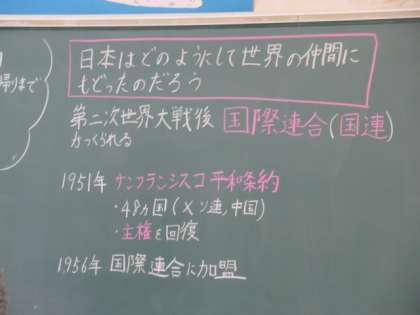 帰りまで
日本はどのようにして世界の仲間に
もどったのだろう
第二次世界大戦後 国際連合(国連)
がつくられる
1951年 サンフランシスコ平和条約
・48カ国(×ソ連,中国)
・主権を回復
1956年 国際連合に加盟